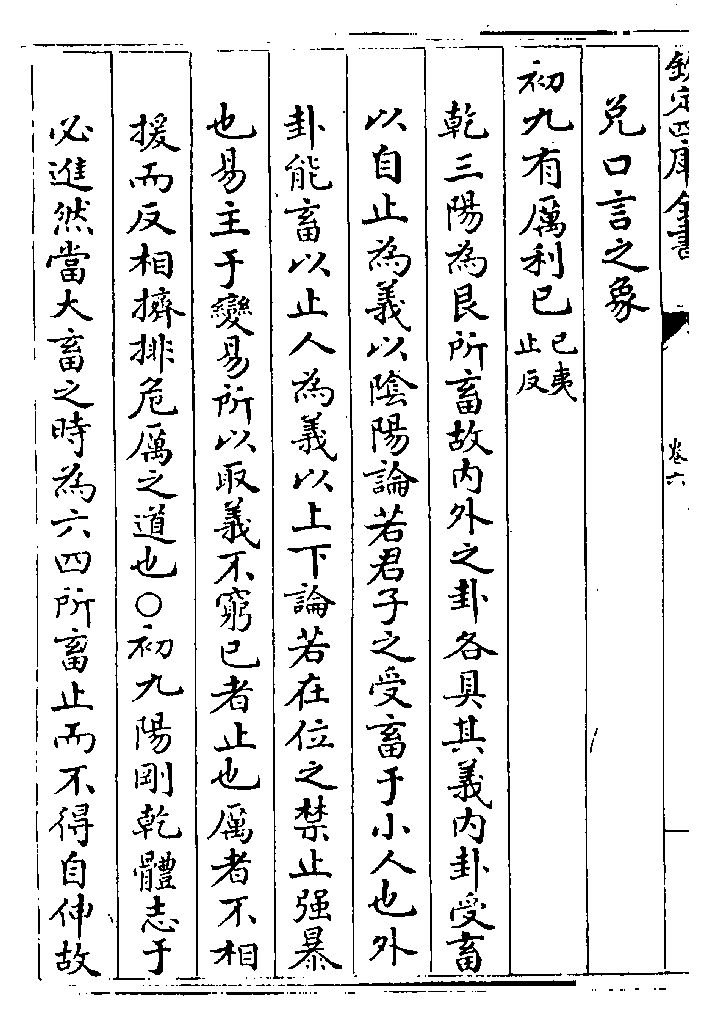 欽定四庫全書
卷六
兌口言之象
初九有厲利已已夷止反
乾三陽為艮所畜故内外之卦各具其義内卦受畜
以自止為義以陰陽論若君子之受畜于小人也外
卦能畜以止人為義以上下論若在位之禁止强暴
也易主于變易所以取義不窮已者止也厲者不相
援而反相擠排危厲之道也○初九陽剛乾體志于
必進然當大畜之時為六四所畜止而不得自伸故